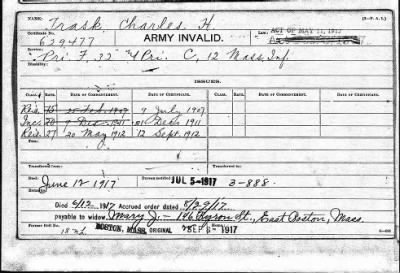 (3-P. A. 1.)
Name, Trask, Charles H.
Certificate, 629477 ARMY INVALID. Law, ACT OF MAY 11, 1912
Service, Pri F, 35 & Pri. C, 12 Mass. Inf.
Disability,
ISSUES.
CLASS. RATE. DATE OF COMMENCEMENT. DATE OF CERTIFICATE. CLASS. RATE. DATE OF COMMENCEMENT. DATE OF CERTIFICATE.
Reis. 15 25 Feb. 1907 9 July 1907
Inc. 20 Dec. 1911
Reis. 27 20 May 1912 12 Sept. 1912
From
Transferred to Transferred from
Died June 12 1917 JUL 5-1917 3-888.
Died 6/12 1917 Accrued order dated 8/29/17
payable to widow, Mary J.- 196 Byron St., East Boston, Mass.
Former Roll No. BOSTON, MASS. ORIGINAL SEP 8-1917